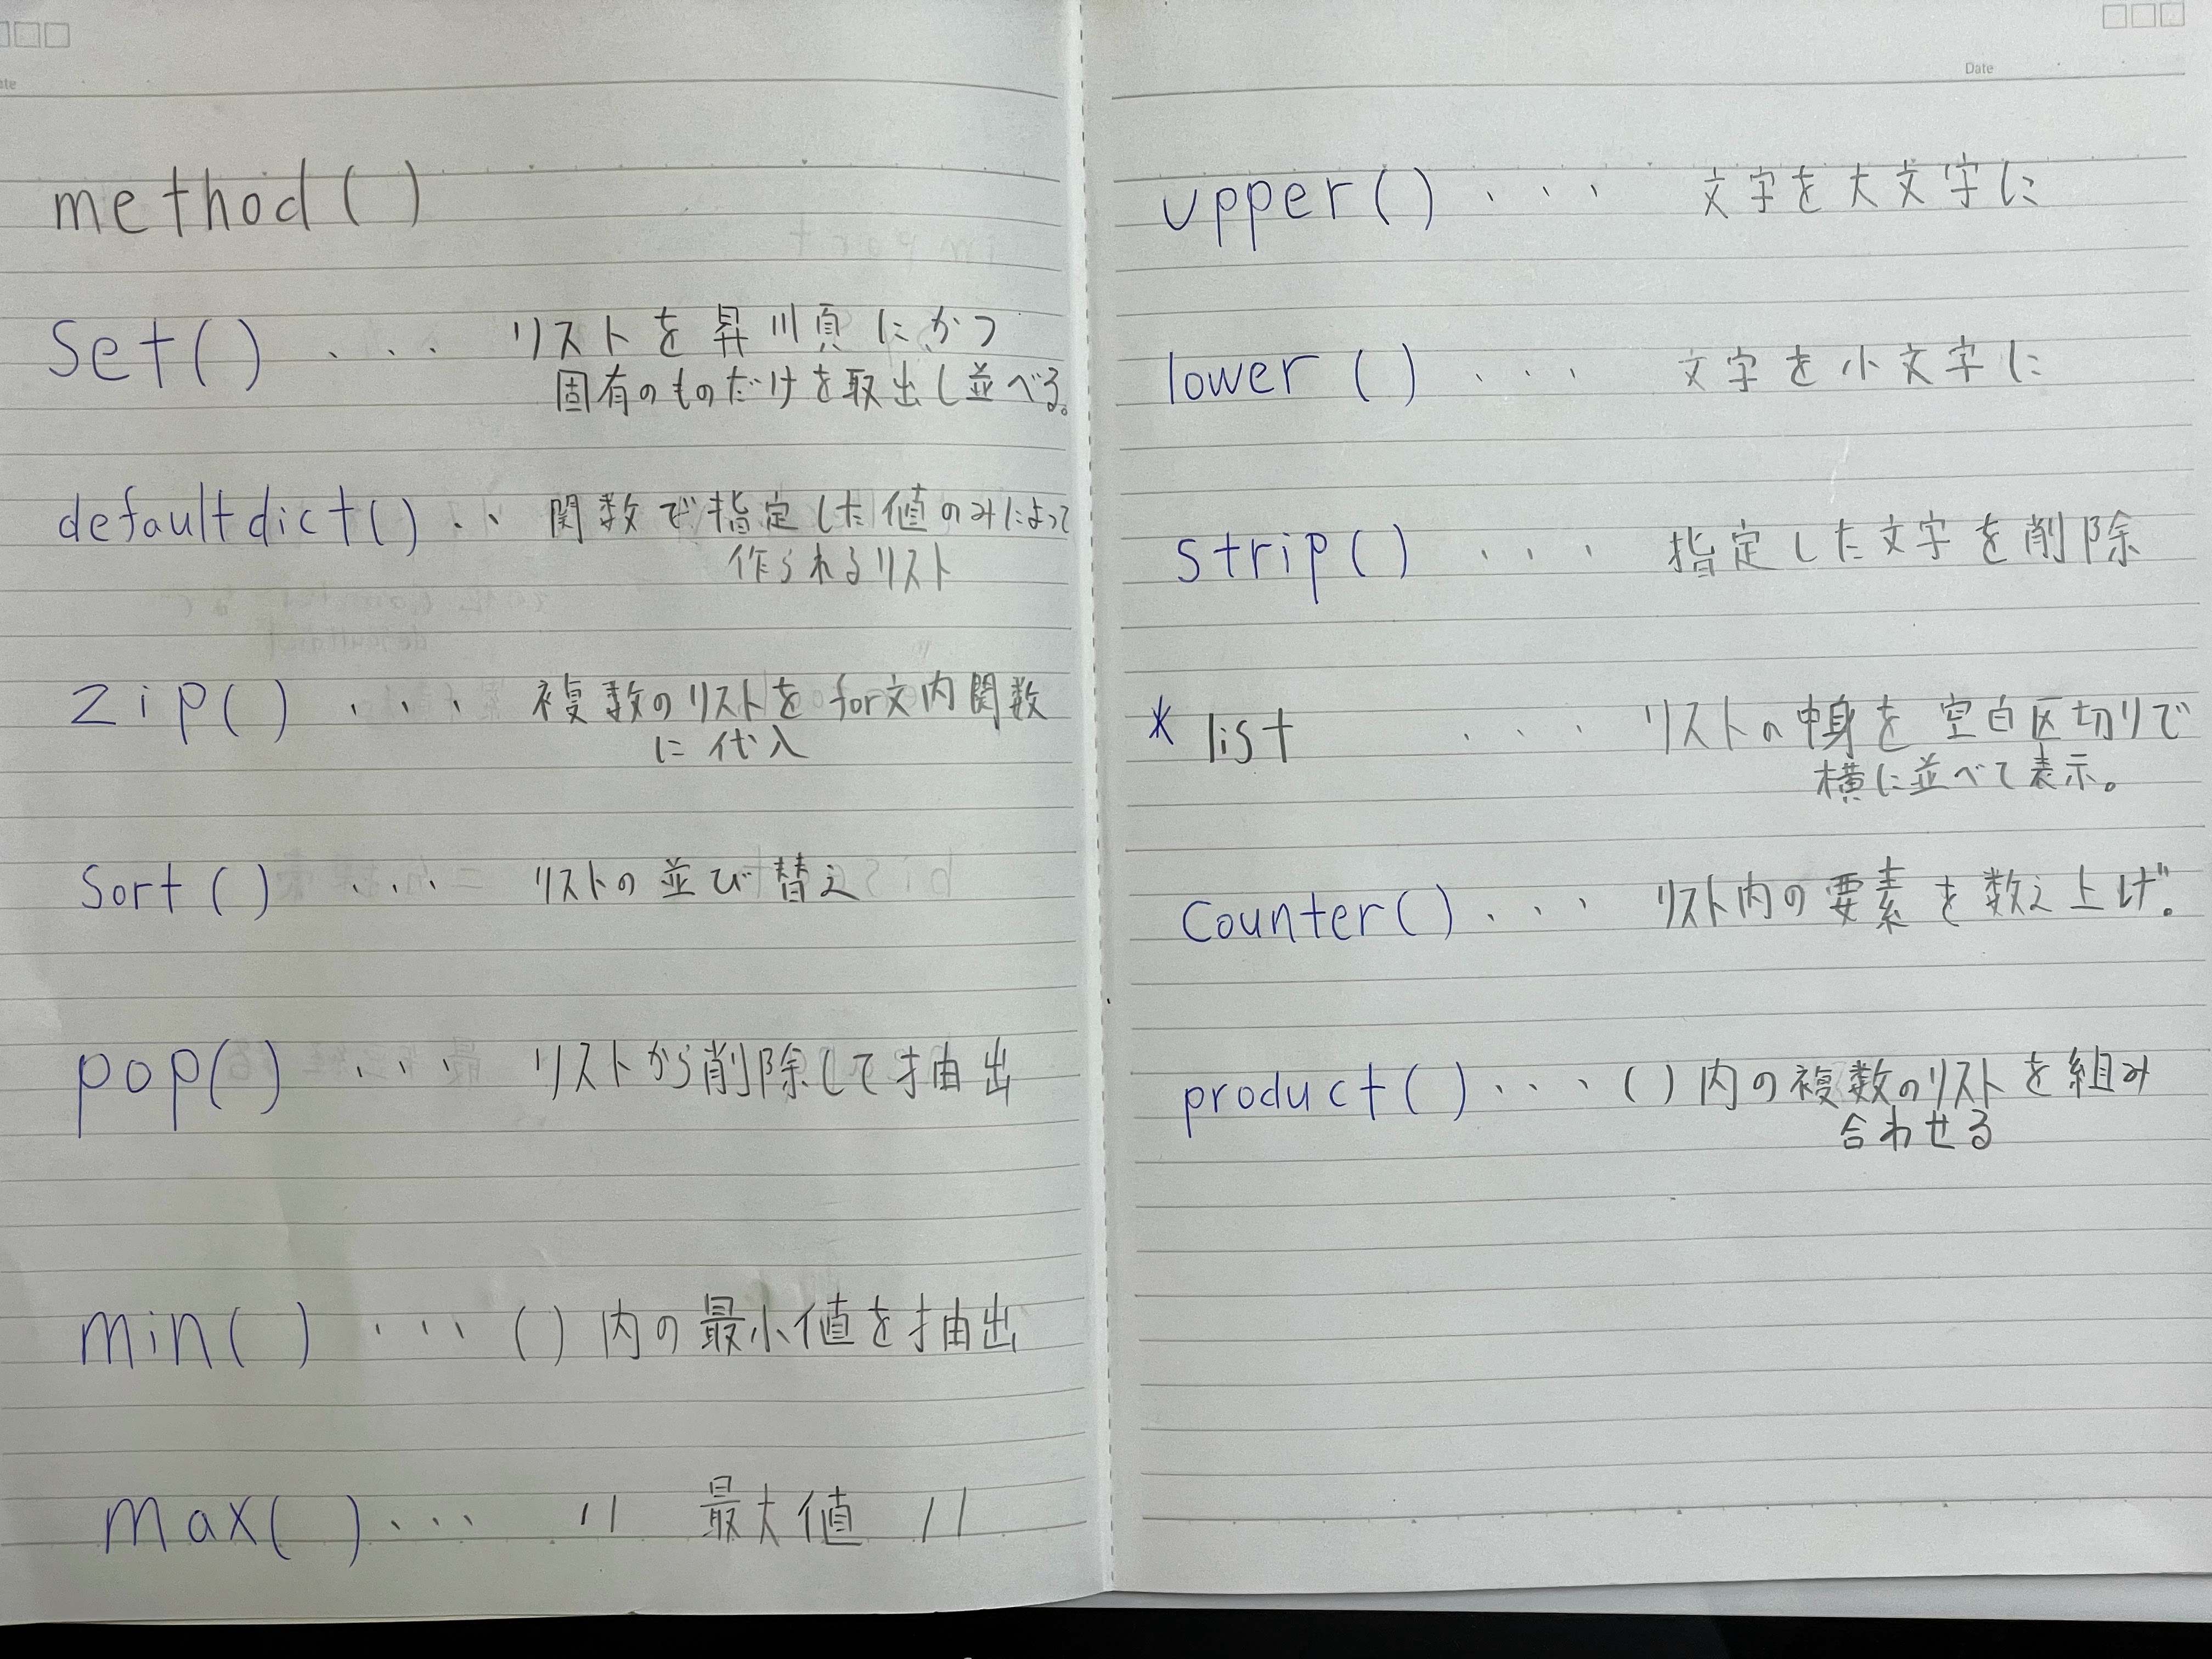 method()
Set() ... リストを昇順にかつ
固有のものだけを取出し並べる。
defaultdict() .. 関数で指定した値のみによって
作られるリスト
zip() ... 複数のリストをfor文内関数
に代入
Sort() ... リストの並び替え
pop() ... リストから削除して抽出
min() ... ()内の最小値を抽出
max() ... 〃 最大値 〃
Date
upper() ... 文字を大文字に
lower() ... 文字を小文字に
strip() ... 指定した文字を削除
*list ... リストの中身を空白区切りで
横に並べて表示。
Counter() ... リスト内の要素を数え上げ。
product() ... ()内の複数のリストを組み
合わせる